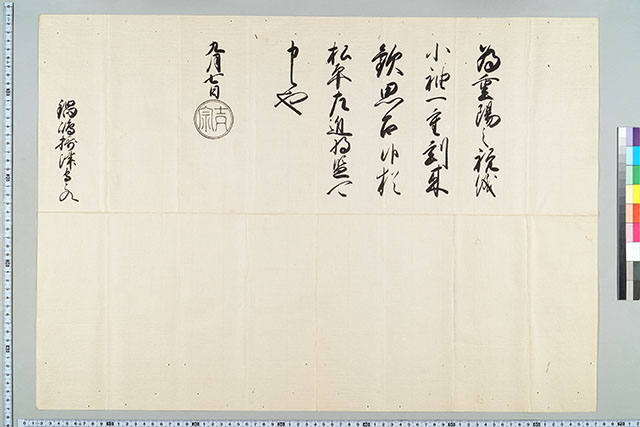 為重陽之祝儀
小袖一重到来
歓思召候猶
松平左近将監可
申候也
九月七日
吉宗
鍋嶋摂津守とのへ